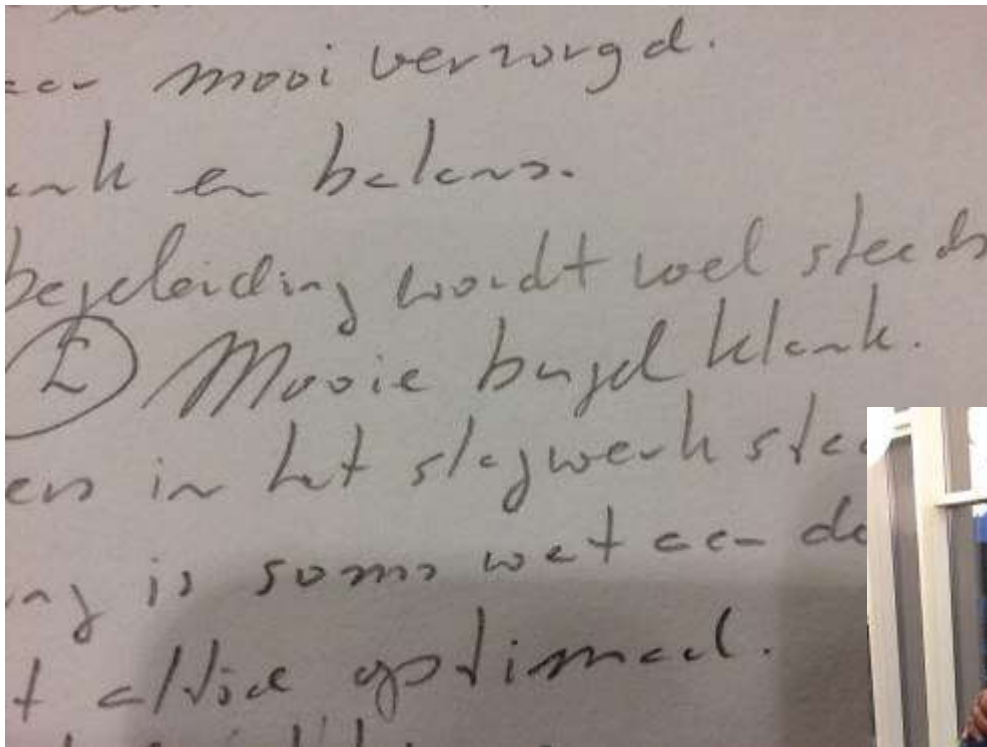 mooi verzorgd.
en balans.
begeleiding wordt wel steeds
E Mooie bugel klank.
in het slagwerk
is soms wat aan de
altijd optimaal.